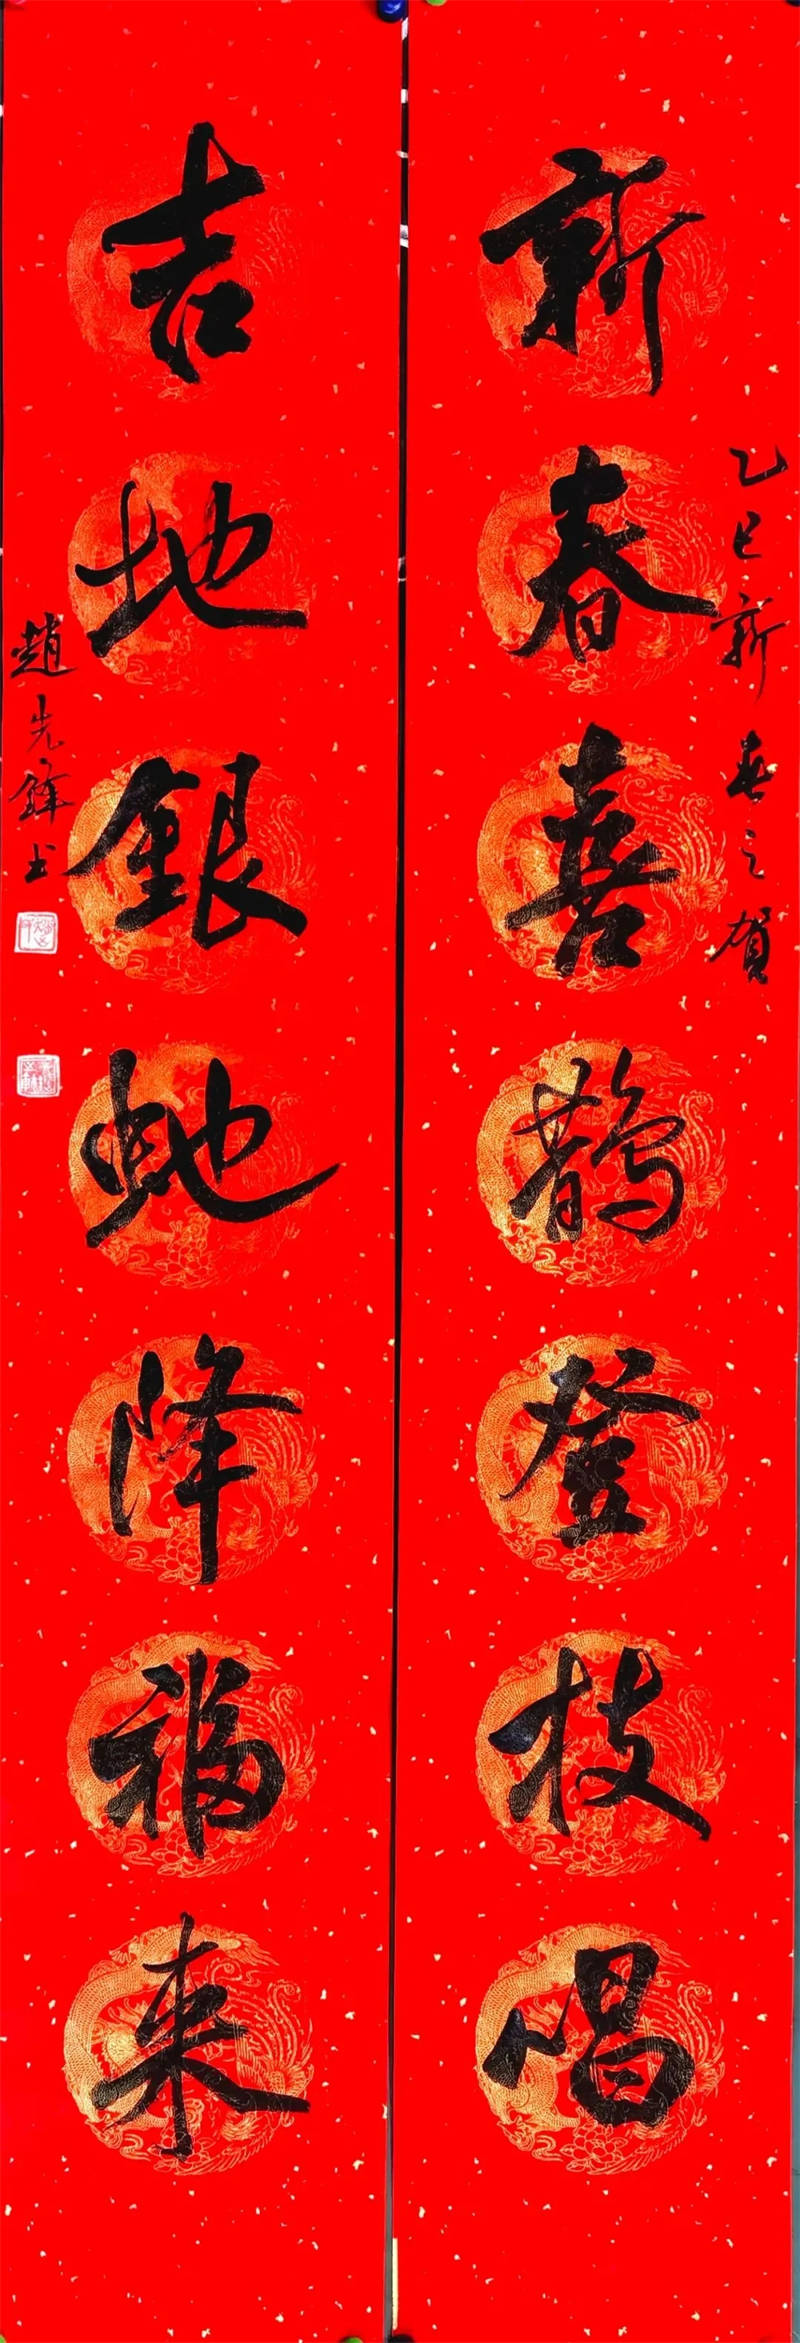 新春喜鹊登枝唱
乙巳新春之贺
吉地銀蛇降福来
趙先鋒书